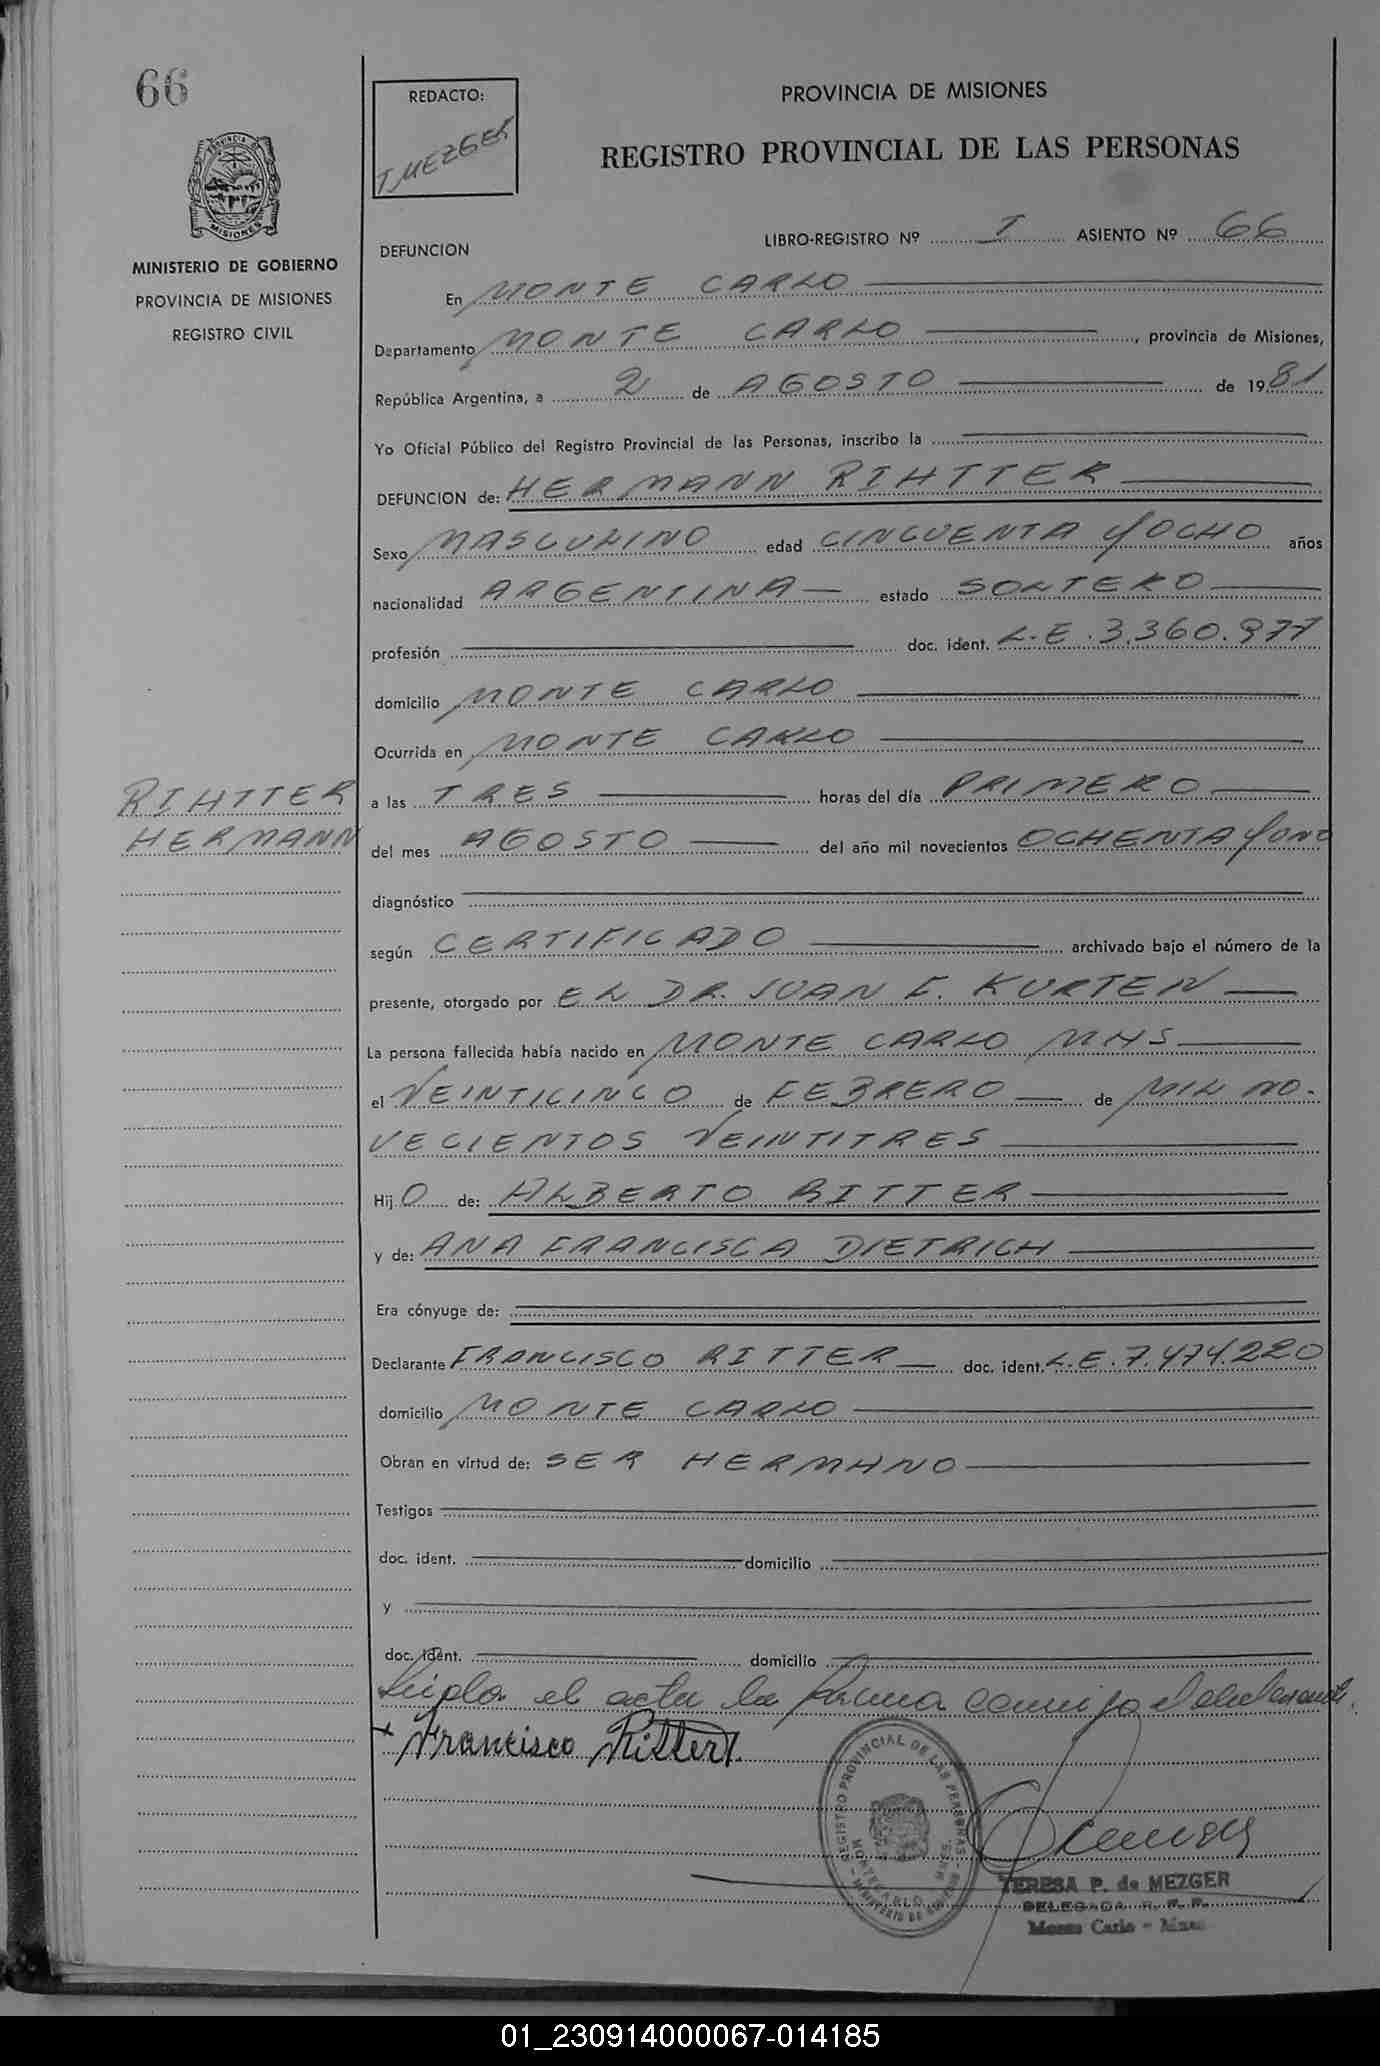 66
REDACTO:
T. MEZGER
PROVINCIA DE MISIONES
REGISTRO PROVINCIAL DE LAS PERSONAS
PROVINCIA DE
MISIONES
MINISTERIO DE GOBIERNO
PROVINCIA DE MISIONES
REGISTRO CIVIL
DEFUNCION
LIBRO-REGISTRO Nº I ASIENTO Nº 66
En MONTE CARLO
Departamento MONTE CARLO, provincia de Misiones,
República Argentina, a 2 de AGOSTO de 1981
Yo Oficial Público del Registro Provincial de las Personas, inscribo la
DEFUNCION de: HERMANN RIHTTER
Sexo MASCULINO edad CINCUENTA Y OCHO años
nacionalidad ARGENTINA estado SOLTERO
profesión doc. ident. L.E. 3.360.977
domicilio MONTE CARLO
Ocurrida en MONTE CARLO
RIHTTER
HERMANN
a las TRES horas del día PRIMERO
del mes AGOSTO del año mil novecientos OCHENTA Y UNO
diagnóstico
según CERTIFICADO archivado bajo el número de la
presente, otorgado por EL DR. JUAN E. KURTEN
La persona fallecida había nacido en MONTE CARLO MNS
el VEINTICINCO de FEBRERO de MIL NO-
VECIENTOS VEINTITRES
Hij O de: ALBERTO RITTER
y de: ANA FRANCISCA DIETRICH
Era cónyuge de:
Declarante FRANCISCO RITTER doc. ident. L.E. 7.474.220
domicilio MONTE CARLO
Obran en virtud de: SER HERMANO
Testigos
doc. ident. domicilio
y
doc. ident. domicilio
Leida el acta la firma conmigo el declarante.
+ Francisco Ritter
REGISTRO PROVINCIAL DE LAS PERSONAS
MONTECARLO MNES.
MINISTERIO DE GOBIERNO
TERESA P. de MEZGER
DELEGADA R. P. P.
Monte Carlo - Mnes
01_230914000067-014185